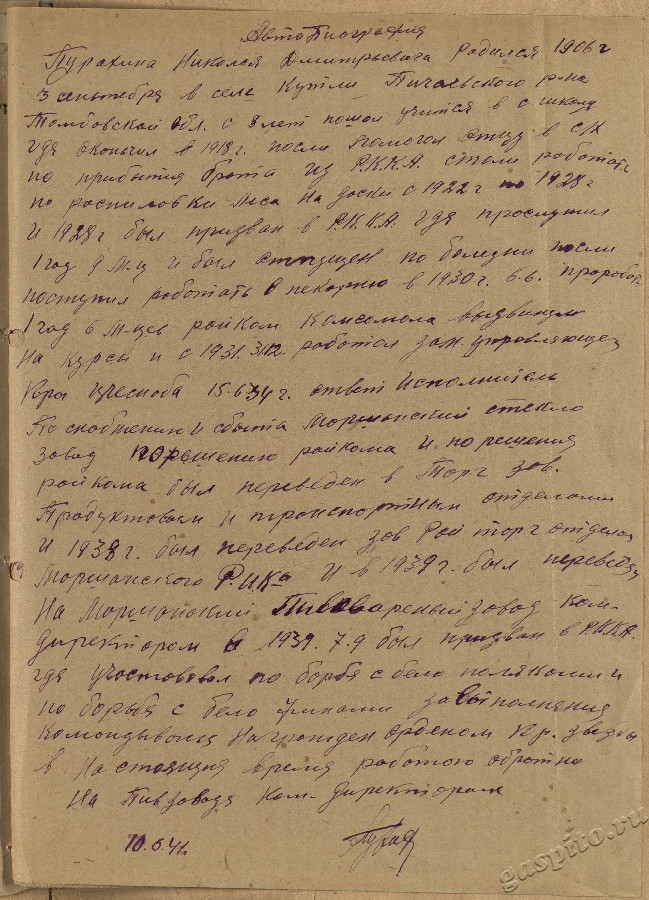 Автобиография
Пурахина Николая Дмитрьевича родился 1906 г
3 сентебря в села Кутли Пичаевского р-на
Томбовской обл. с 8 лет пошол учится в с. школу
где окончил в 1918 г. посли помогол отцу в С/Х
по прибытия брата из Р.К.К.А. стали роботать
по роспиловки леса на доски с 1922 г по 1928 г
и 1928 г был призван в Р.К.К.А. где прослужил
1 год 9 м-ц и был отпущен по болезни посли
поступил роботать в пекарню в 1930 г. проробот.
1 год 6 м-цев ройком Комсомола выдвинули
на курсы и с 1931. роботол зам. упровляющец
15-6.34 г. ответ Исполнитель
По снобжению и сбыта Моршонский стекло
завод по решению ройкома и по решения
ройкома был переведен в Торг зав.
Продуктовым и транспортным отделами
и 1938 г. был переведен зав Рай торг отделом
Моршанского Р.И.Ка и в 1939 г. был переведен
На Моршонский Пивовареный завод ком-
директором в 1939. 7.9 был призван в Р.К.К.А.
где участвовал по борьба с бело поляками и
по борьба с бело финами за выполнения
Комондывония Награжден орденом Кр. Звезды
в настоящия время работою обротно
На Пивзавода Ком-директором
10.6.41.
gaspito.ru